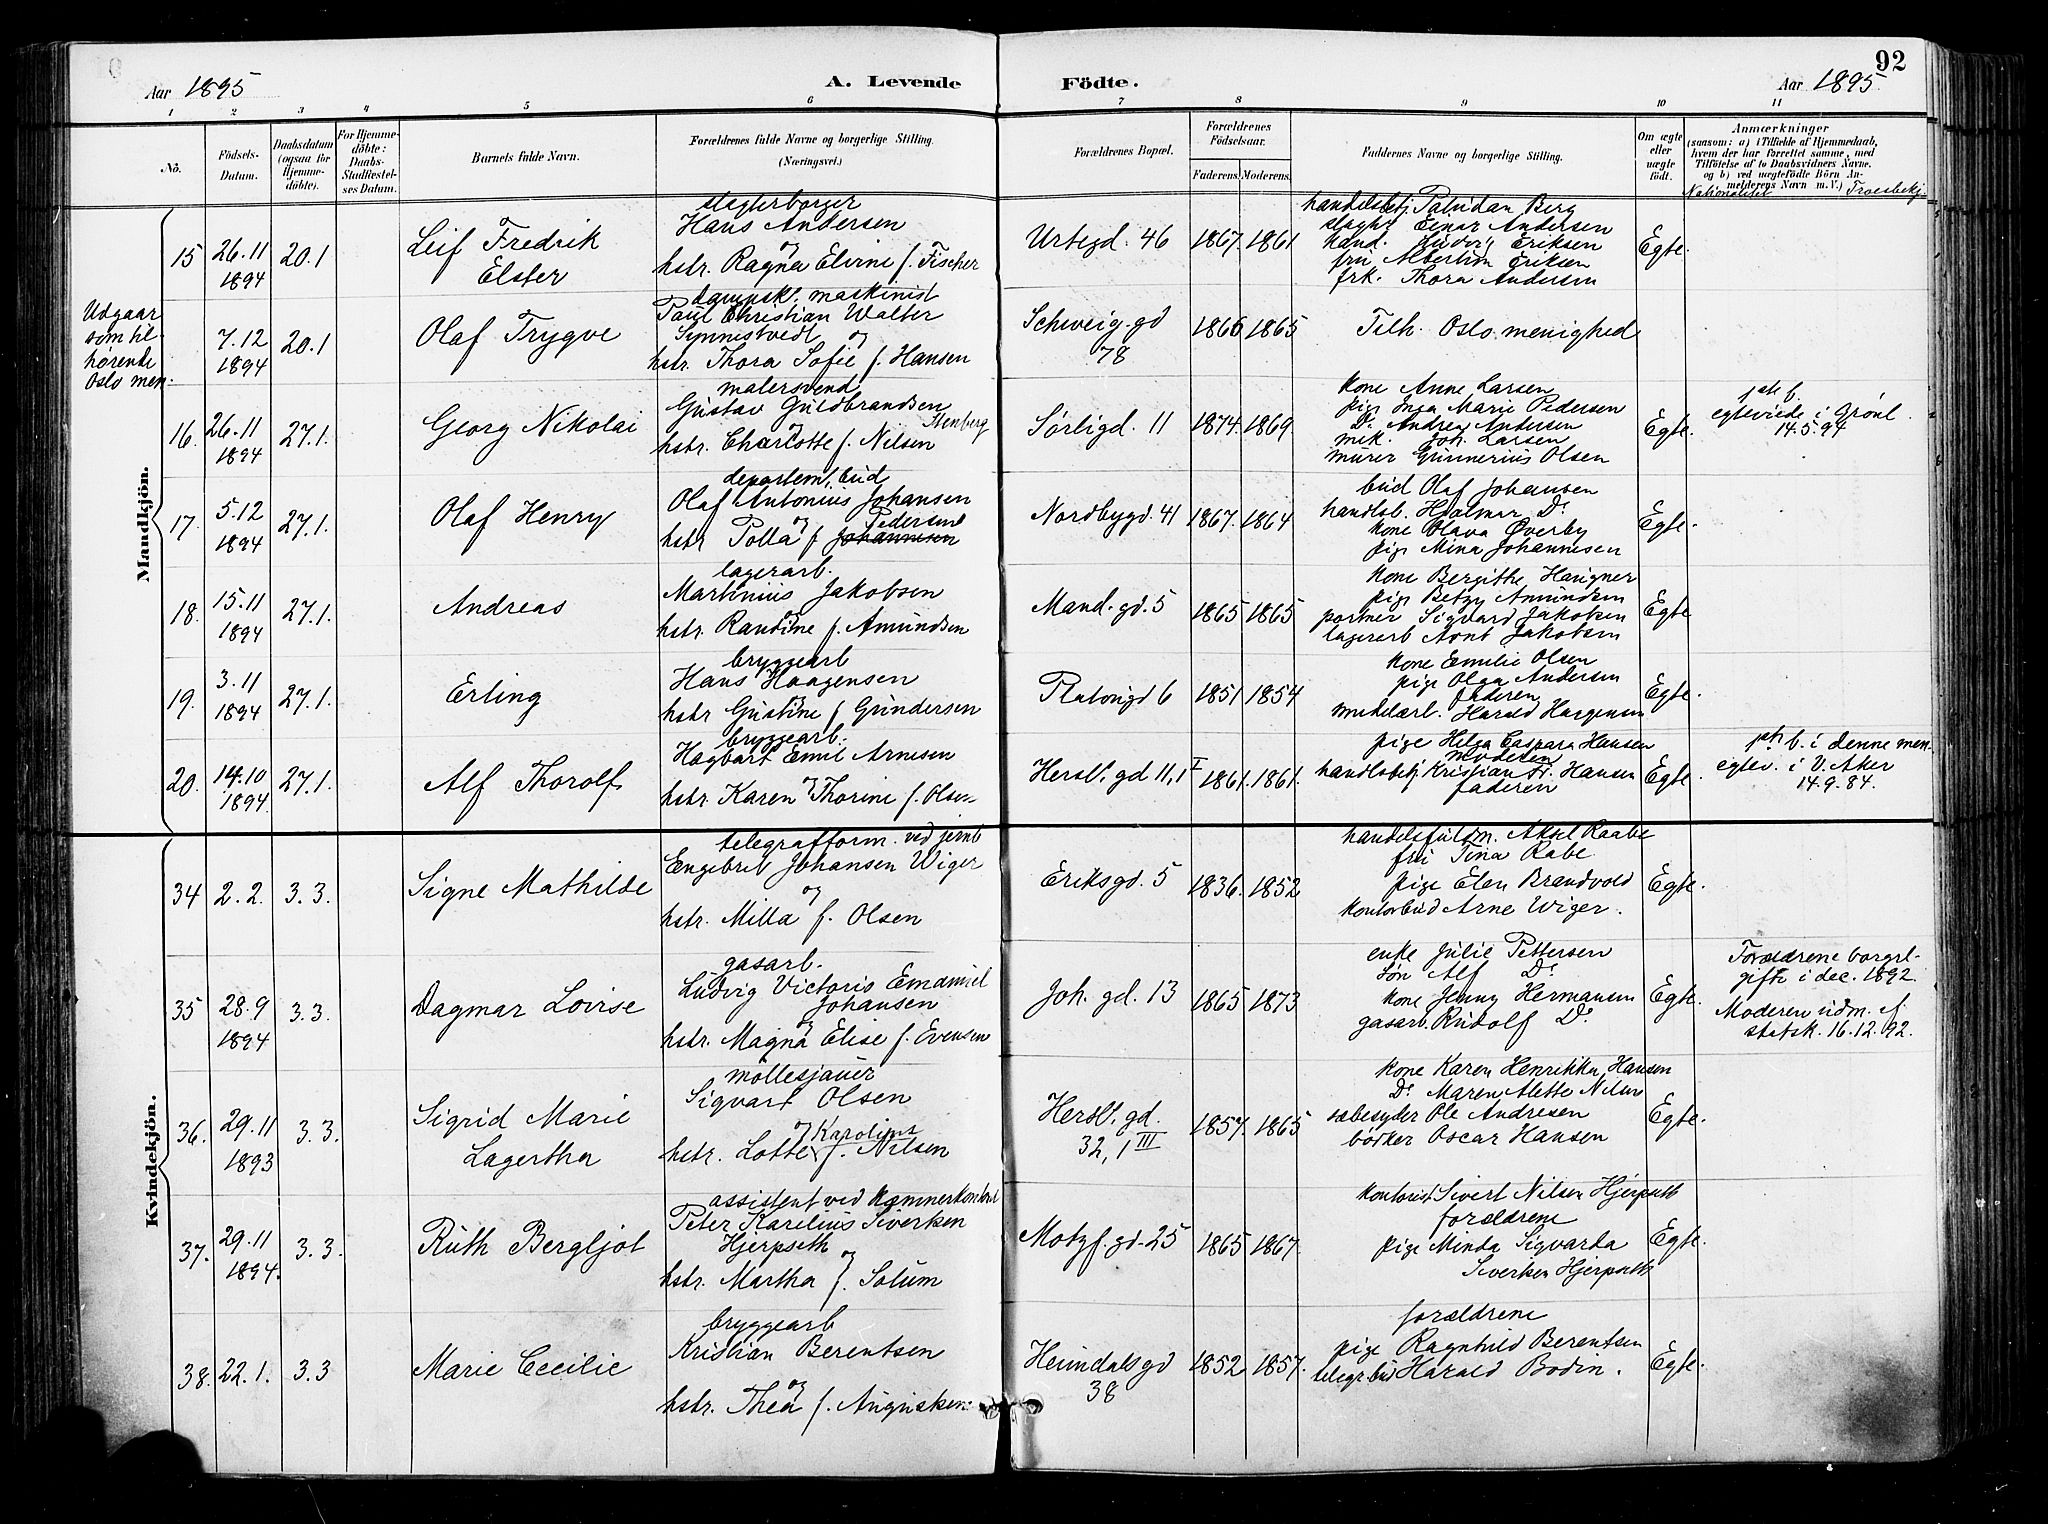 92
Aar 1895
A. Levende
Födte.
Aar 1895
1 2 3 4 5 6 7 8 9 10 11
No.
Födsels-
Datum.
Daabsdatum
(ogsaa for
Hjemme-
döbte).
For Hjemme-
döbte:
Daabs-
Stadfæstel-
ses Datum.
Barnets fulde Navn.
Forældrenes fulde Navne og borgerlige Stilling.
(Næringsvei.)
Forældrenes Bopæl.
Forældrenes
Födselsaar.
Faderens. Moderens.
Faddernes Navne og borgerlige Stilling.
Om ægte
eller
uægte
født.
Anmærkninger
(saasom: a) i Tilfælde af Hjemmedaab,
hvem der har forrettet samme, med
Tilføielse af to Daabsvidners Navne.
og b) ved uægtefödte Börn An-
melderens Navn m. V.)
Nationalitet Troesbekj
Mandkjön.
15
26.11
1894
20.1
Leif Fredrik
Elster
slagterborger
Hans Andersen
og
hstr. Ragna Elvine f. Fischer
Urtegd. 46
1867. 1861
handelsbetj. Paludan Berg
slagter Einar Andersen
hand. Ludvig Eriksen
fru Albertine Eriksen
frk. Thora Andersen
Egte.
Udgaar
som til-
hørende
Oslo men.
7.12
1894
20.1
Olaf Trygve
dampsk. maskinist
Paul Christian Walter
Synnestvedt og
hstr. Thora Sofie f. Hansen
Schweig. gd
78
1866 1865
Tilh. Oslo menighed
16.
26.11
1894
27.1.
Georg Nikolai
malersvend
Gustav Guldbrandsen
Stenberg
og
hstr. Charlotte f. Nilsen
Sørligd. 11
1874. 1869.
kone Anne Larsen
pige Inga Marie Pedersen
Do Andrea Andersen
mek. Joh. Larsen
murer Gunnerius Olsen
Egte.
1ste b.
egteviede i Grønl.
14.5.94
17.
5.12
1894
27.1.
Olaf Henry
departem. bud
Olaf Antonius Johansen
og Pedersene
hstr Polla f Johannesen
Nordbygd. 41
1867. 1864
bud Olaf Johansen
handlsb. Hjalmar Do
kone Olava Øverby
pige Mina Johannesen
Egte.
18.
15.11
1894
27.1.
Andreas
lagerarb.
Martinius Jakobsen
og
hstr. Randine f. Amundsen
Mand. gd. 5
1865 1865
kone Bergithe
pige Betzy Amundsen
portner Sigvard Jakobsen
lagererb Arnt Jakobsen
Egte
19.
3.11
1894
27.1.
Erling
bryggearb
Hans Haagensen
og
hstr Gustine f Gundersen
Platousgd 6
1851 1854
kone Emilie Olsen
pige Olga Andersen
faderen
Harald Haagensen
Egte.
20.
14.10
1894.
27.1.
Alf Thorolf
bryggearb.
Hagbart Emil Arnesen
og
hstr. Karen Thorine f. Olsen
Hersl. gd 11, 1 I
1861. 1861.
pige Helga Caspara Hansen
moderen
handlsbetj Kristian Fr. Hansen
faderen
Egte.
1ste b. i denne men.
egtev. i V. Aker
14.9.84.
Kvindekjön.
34
2.2.
3.3.
Signe Mathilde
telegrafform. ved jernb
Engebret Johansen Wiger
og
hstr. Milla f. Olsen
Eriksgd. 5
1836. 1852
handelsfuldm. Aksel Raabe
fru Tina Rabe
pige Elen Brandvold
kontorbud Arne Wiger.
Egte.
35
28.9
1894
3.3.
Dagmar Lovise
gasarb.
Ludvig Victoris Emanuel
Johansen
og
hstr. Magna Elise f. Evensen
Joh. gd. 13
1865 1873
enke Julie Pettersen
søn Alf Do
kone Jenny Hermansen
gasarb. Rudolf Do
Egte.
Forældrene borgel-
gifte i dec. 1892.
Moderen udm. f.
statsk. 16.12.92.
36.
29.11
1893
3.3.
Sigrid Marie
Lagertha
møllesjauer
Sigvart Olsen
og Karoline
hstr. Lotte f. Nilsen
Hersl. gd.
32, 1 III
1857. 1865
kone Karen Henrikka Hansen
Do Maren Alette Nilsen
sæbesyder Ole Andresen
bødker Oscar Hansen
Egte.
37.
29.11
1894.
3.3.
Ruth Bergljot
assistent ved kæmnerkontoret
Peter Karelius Siversen
Hjerpseth og
hstr. Martha f. Solum
Motzf. gd. 25
1865 1867.
kontorist Sivert Nilsen Hjerpseth
forældrene
pige Minda Sigvarda
Siversen Hjerpseth
Egte.
38.
22.1.
3.3
Marie Cecilie
bryggearb
Kristian Berentsen
og
hstr. Thea f. Augustsen.
Heimdalsgd
38
1852 1857.
forældrene
pige Ragnhild Berentsen
telegr bud Harald Bodin.
Egte.